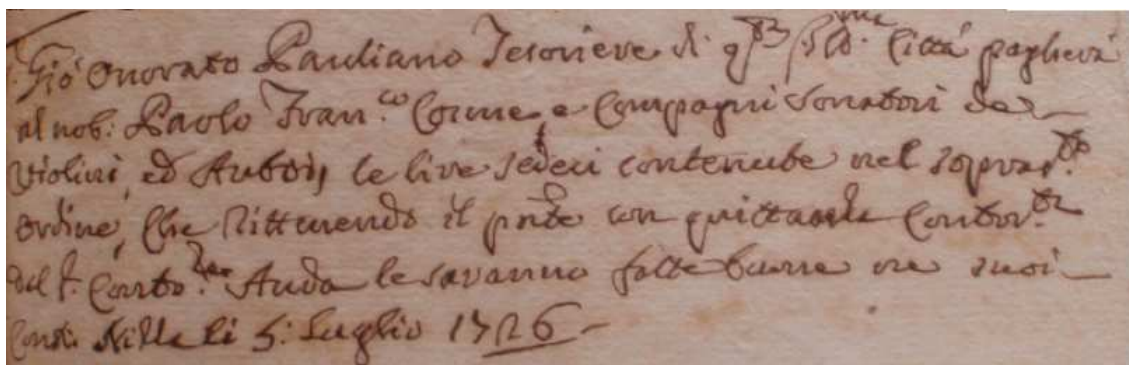 Gio Onorato Pauliano Tesoriere di q.sta Ill.ma Città pagherà
al nob: Paolo Fran.co Corne, e Compagni Sonatori de
Violini, ed Auboi, le lire sedeci contenute nel soprad.to
ordine, Che Rittirando il pnte con quittanza Contror.ta
dal S.r Auda le saranno fatte buone ne suoi
Conti. Nizza li 5: Luglio 1726